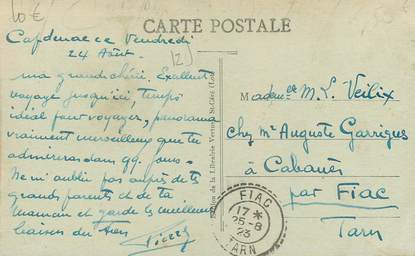 10 €
CARTE POSTALE
Capdenac ce Vendredi
24 Août.
ma grande chérie. Excellent
voyage jusqu'ici, temps
idéal pour voyager, panorama
vraiment merveilleux que tu
admireras dans qq. jours.
Ne m'oublie pas auprès de tes
grands parents et de ta
maman et garde les meilleurs
baisers du tien
Pierre
Edition de la Librairie St-Céré (Lot)
Mademelle M. L. Veilix
chez Mr Auguste Garrigues
à Cabanès
par Fiac
Tarn
FIAC
17 *
25-8
23
TARN